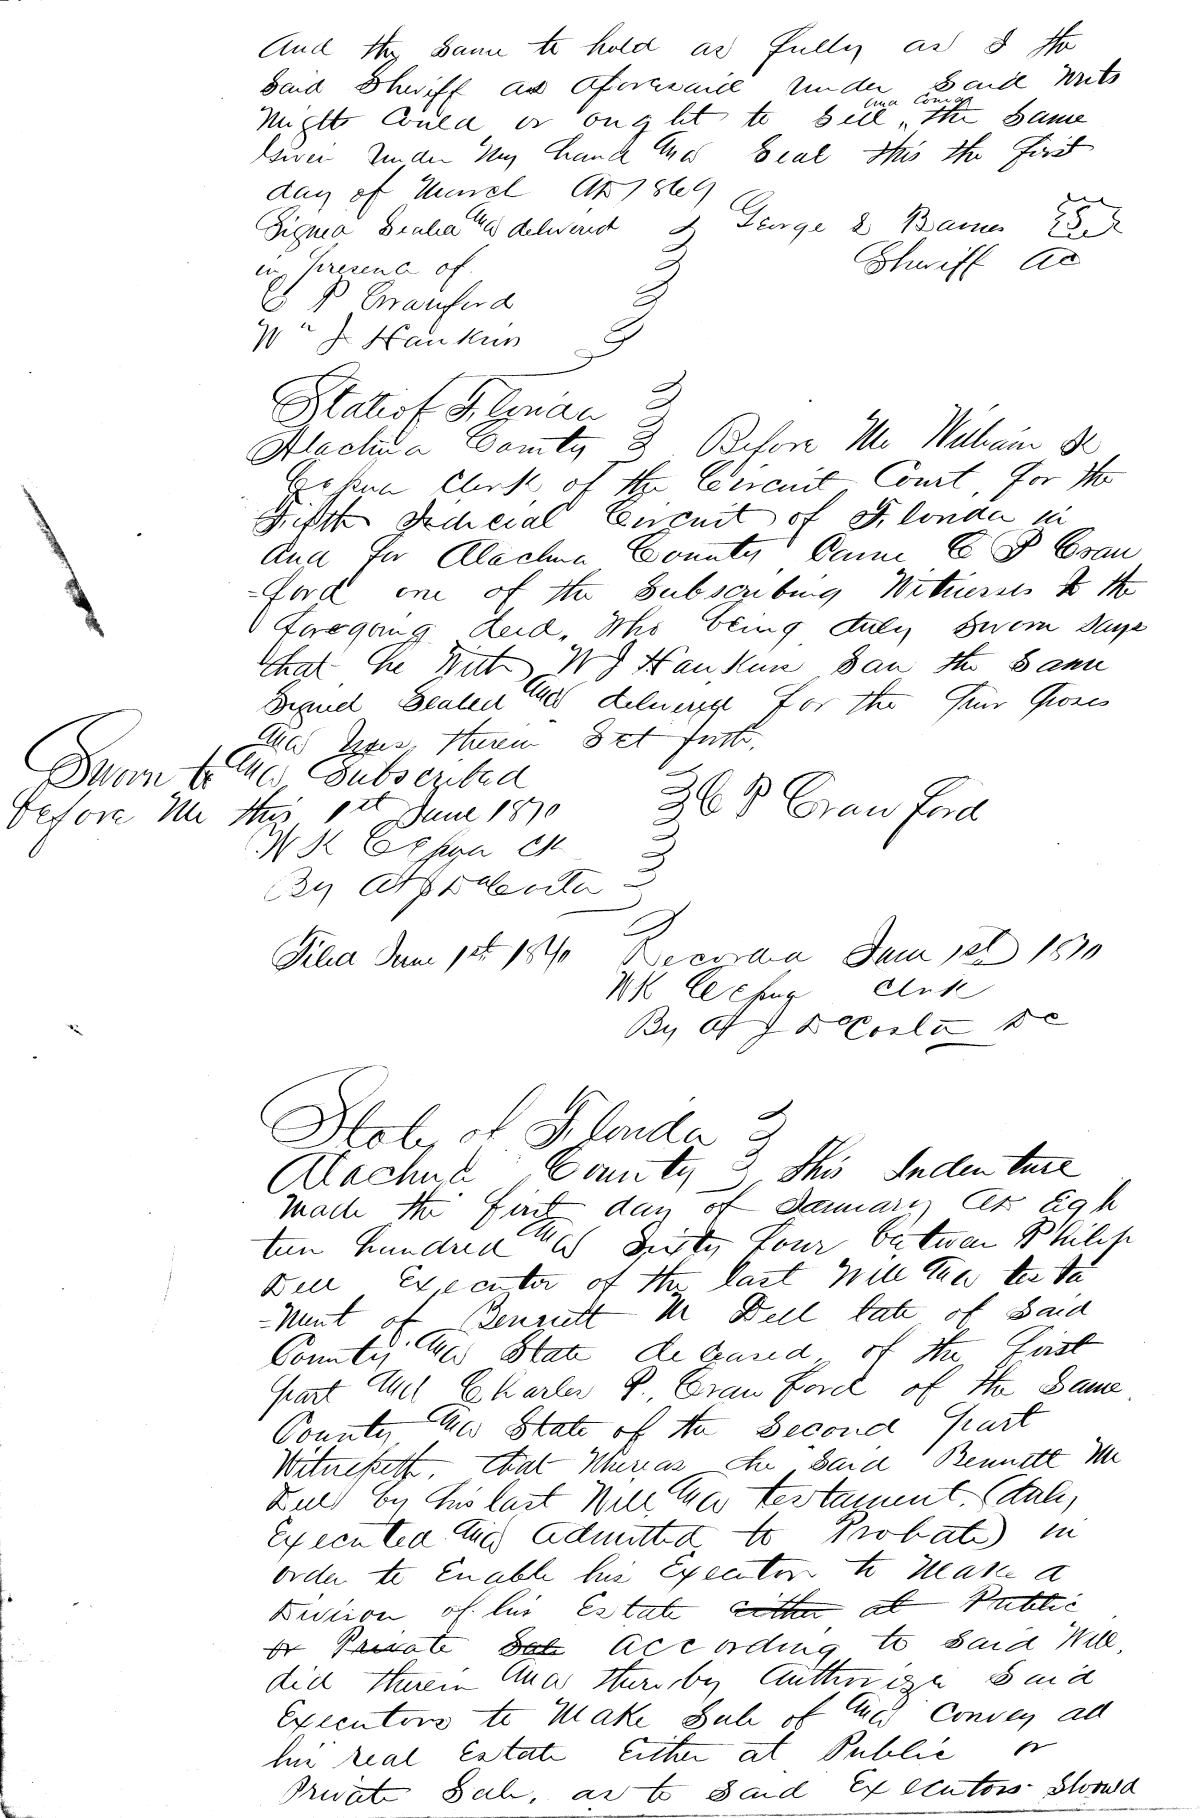 And the same to hold as fully as I the
Said Sheriff as aforesaid under said writs
Might Could or ought to Sell and Convey the Same
Given under My hand and Seal this the first
day of March AD 1869
Signed Sealed and delivered George E Barnes S
in presence of Sheriff AC
C P Crawford
Wm J Hankins
State of Florida
Alachua County Before Me William K
Cessna Clerk of the Circuit Court, for the
Fifth Judicial Circuit of Florida in
and for Alachua County Came C P Craw
=ford one of the Subscribing Witnesses to the
foregoing deed, Who being duly Sworn Says
that he With W J Hankins Saw the Same
Signed Sealed and delivered for the Purposes
and Uses, therein Set forth.
Sworn to and Subscribed
before Me this 1st June 1870 C P Crawford
W K Cessna Clk
By A J DaCosta
Filed June 1st 1870 Recorded June 1st 1870
WK Cessna Clerk
By A J DaCosta DC
State of Florida
Alachua County This Indenture
Made the first day of January AD Eigh
teen hundred and Sixty four between Philip
Dell Executor of the last Will and testa
=Ment of Bennett M Dell late of Said
County and State deceased, of the first
part and Charles P. Crawford of the Same
County and State of the Second part
Witnesseth, that Whereas he Said Bennett M
Dell by his last Will and testament, (duly
Executed and Admitted to Probate) in
order to Enable his Executor to Make a
Division of his Estate either at Public
or Private Sale according to Said Will,
did therein and thereby Authorize Said
Executors to Make Sale of and Convey all
his real Estate Either at Public or
Private Sale, as to Said Executors Should